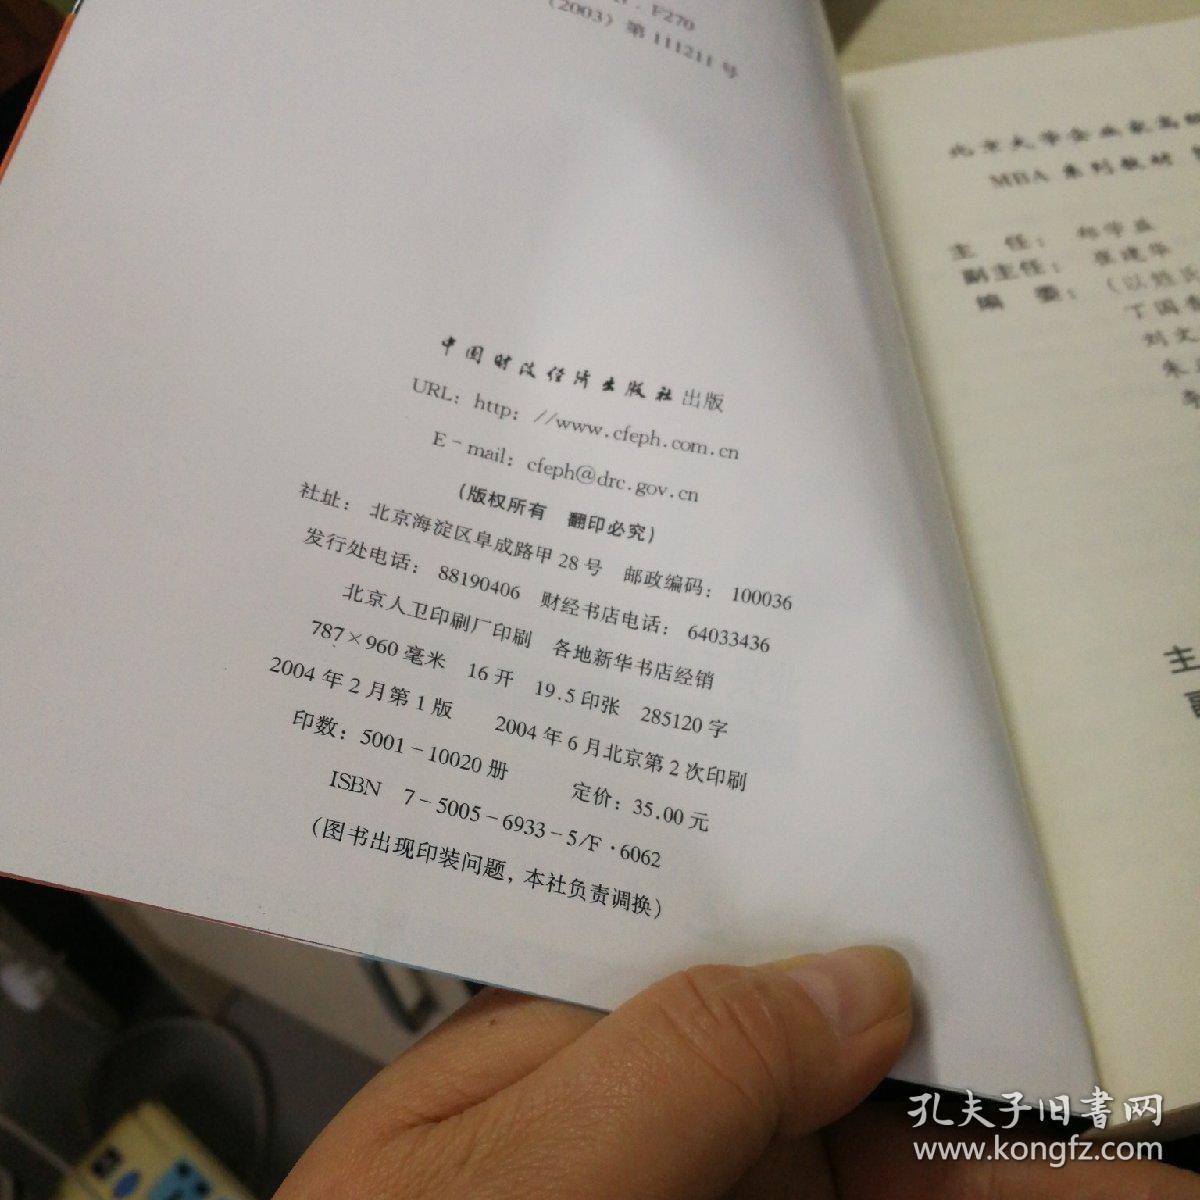 F270
(2003) 第 111211 号
中国财政经济出版社 出版
URL: http: //www.cfeph.com.cn
E-mail: cfeph@drc.gov.cn
(版权所有 翻印必究)
社址: 北京海淀区阜成路甲 28 号 邮政编码: 100036
发行处电话: 88190406 财经书店电话: 64033436
北京人卫印刷厂印刷 各地新华书店经销
787×960 毫米 16 开 19.5 印张 285120 字
2004 年 2 月第 1 版 2004 年 6 月北京第 2 次印刷
印数: 5001-10020 册 定价: 35.00 元
ISBN 7-5005-6933-5/F·6062
(图书出现印装问题, 本社负责调换)
北京大学企业家高
MBA 系列教材
主 任: 郑学益
副主任: 崔建华
编 委: (以姓氏
丁国
刘文
朱
李
主
副
孔夫子旧书网
www.kongfz.com